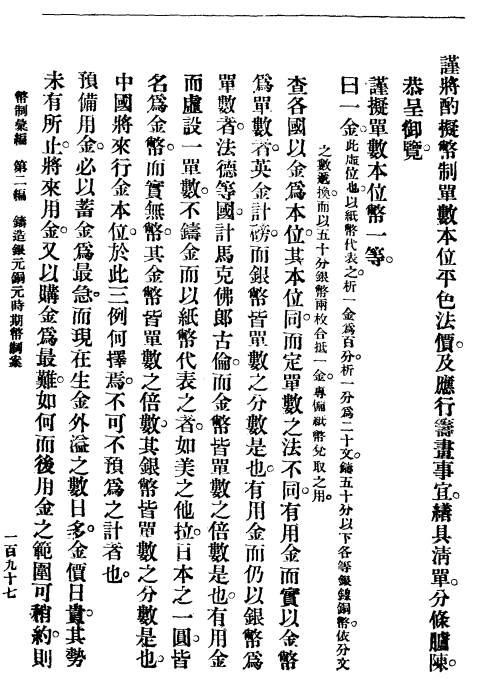 謹將酌擬幣制單數本位平色法價。及應行籌畫事宜。繕具淸單。分條臚陳。
恭呈御覽。
謹擬單數本位幣一等。
曰一金。此虛位也。以紙幣代表之。析一金爲百分。析一分爲二十文。鑄五十分以下各等銀鎳銅幣。依分文
之數遞換。而以五十分銀幣兩枚合抵一金。專備紙幣兌取之用。
查各國以金爲本位。其本位同。而定單數之法不同。有用金而實以金幣
爲單數者。英金計磅。而銀幣皆單數之分數是也。有用金而仍以銀幣爲
單數者。法德等國。計馬克佛郎古倫。而金幣皆單數之倍數是也。有用金
而虛設一單數。不鑄金而以紙幣代表之者。如美之他拉。日本之一圓。皆
名爲金幣。而實無幣。其金幣皆單數之倍數。其銀幣皆單數之分數是也。
中國將來行金本位。於此三例何擇焉。不可不預爲之計者也。
預備用金。必以蓄金爲最急。而現在生金外溢之數日多。金價日貴。其勢
未有所止。將來用金。又以購金爲最難。如何而後用金之範圍可稍約。則
幣制彙編 第二編 鑄造銀元銅元時期幣制案
一百九十七